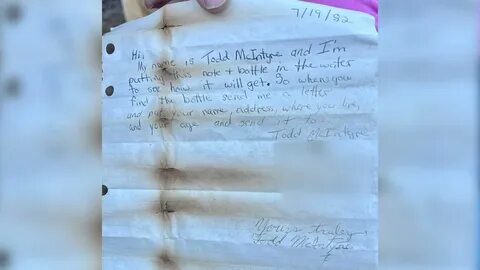 7/19/82
Hi,
My name is Todd McIntyre and I'm
putting this note + bottle in the water
to see how it will get. So when you
find the bottle send me a letter
and put your name, address, where you live,
and your age and send it to
Todd McIntyre
Yours truley
Todd McIntyre